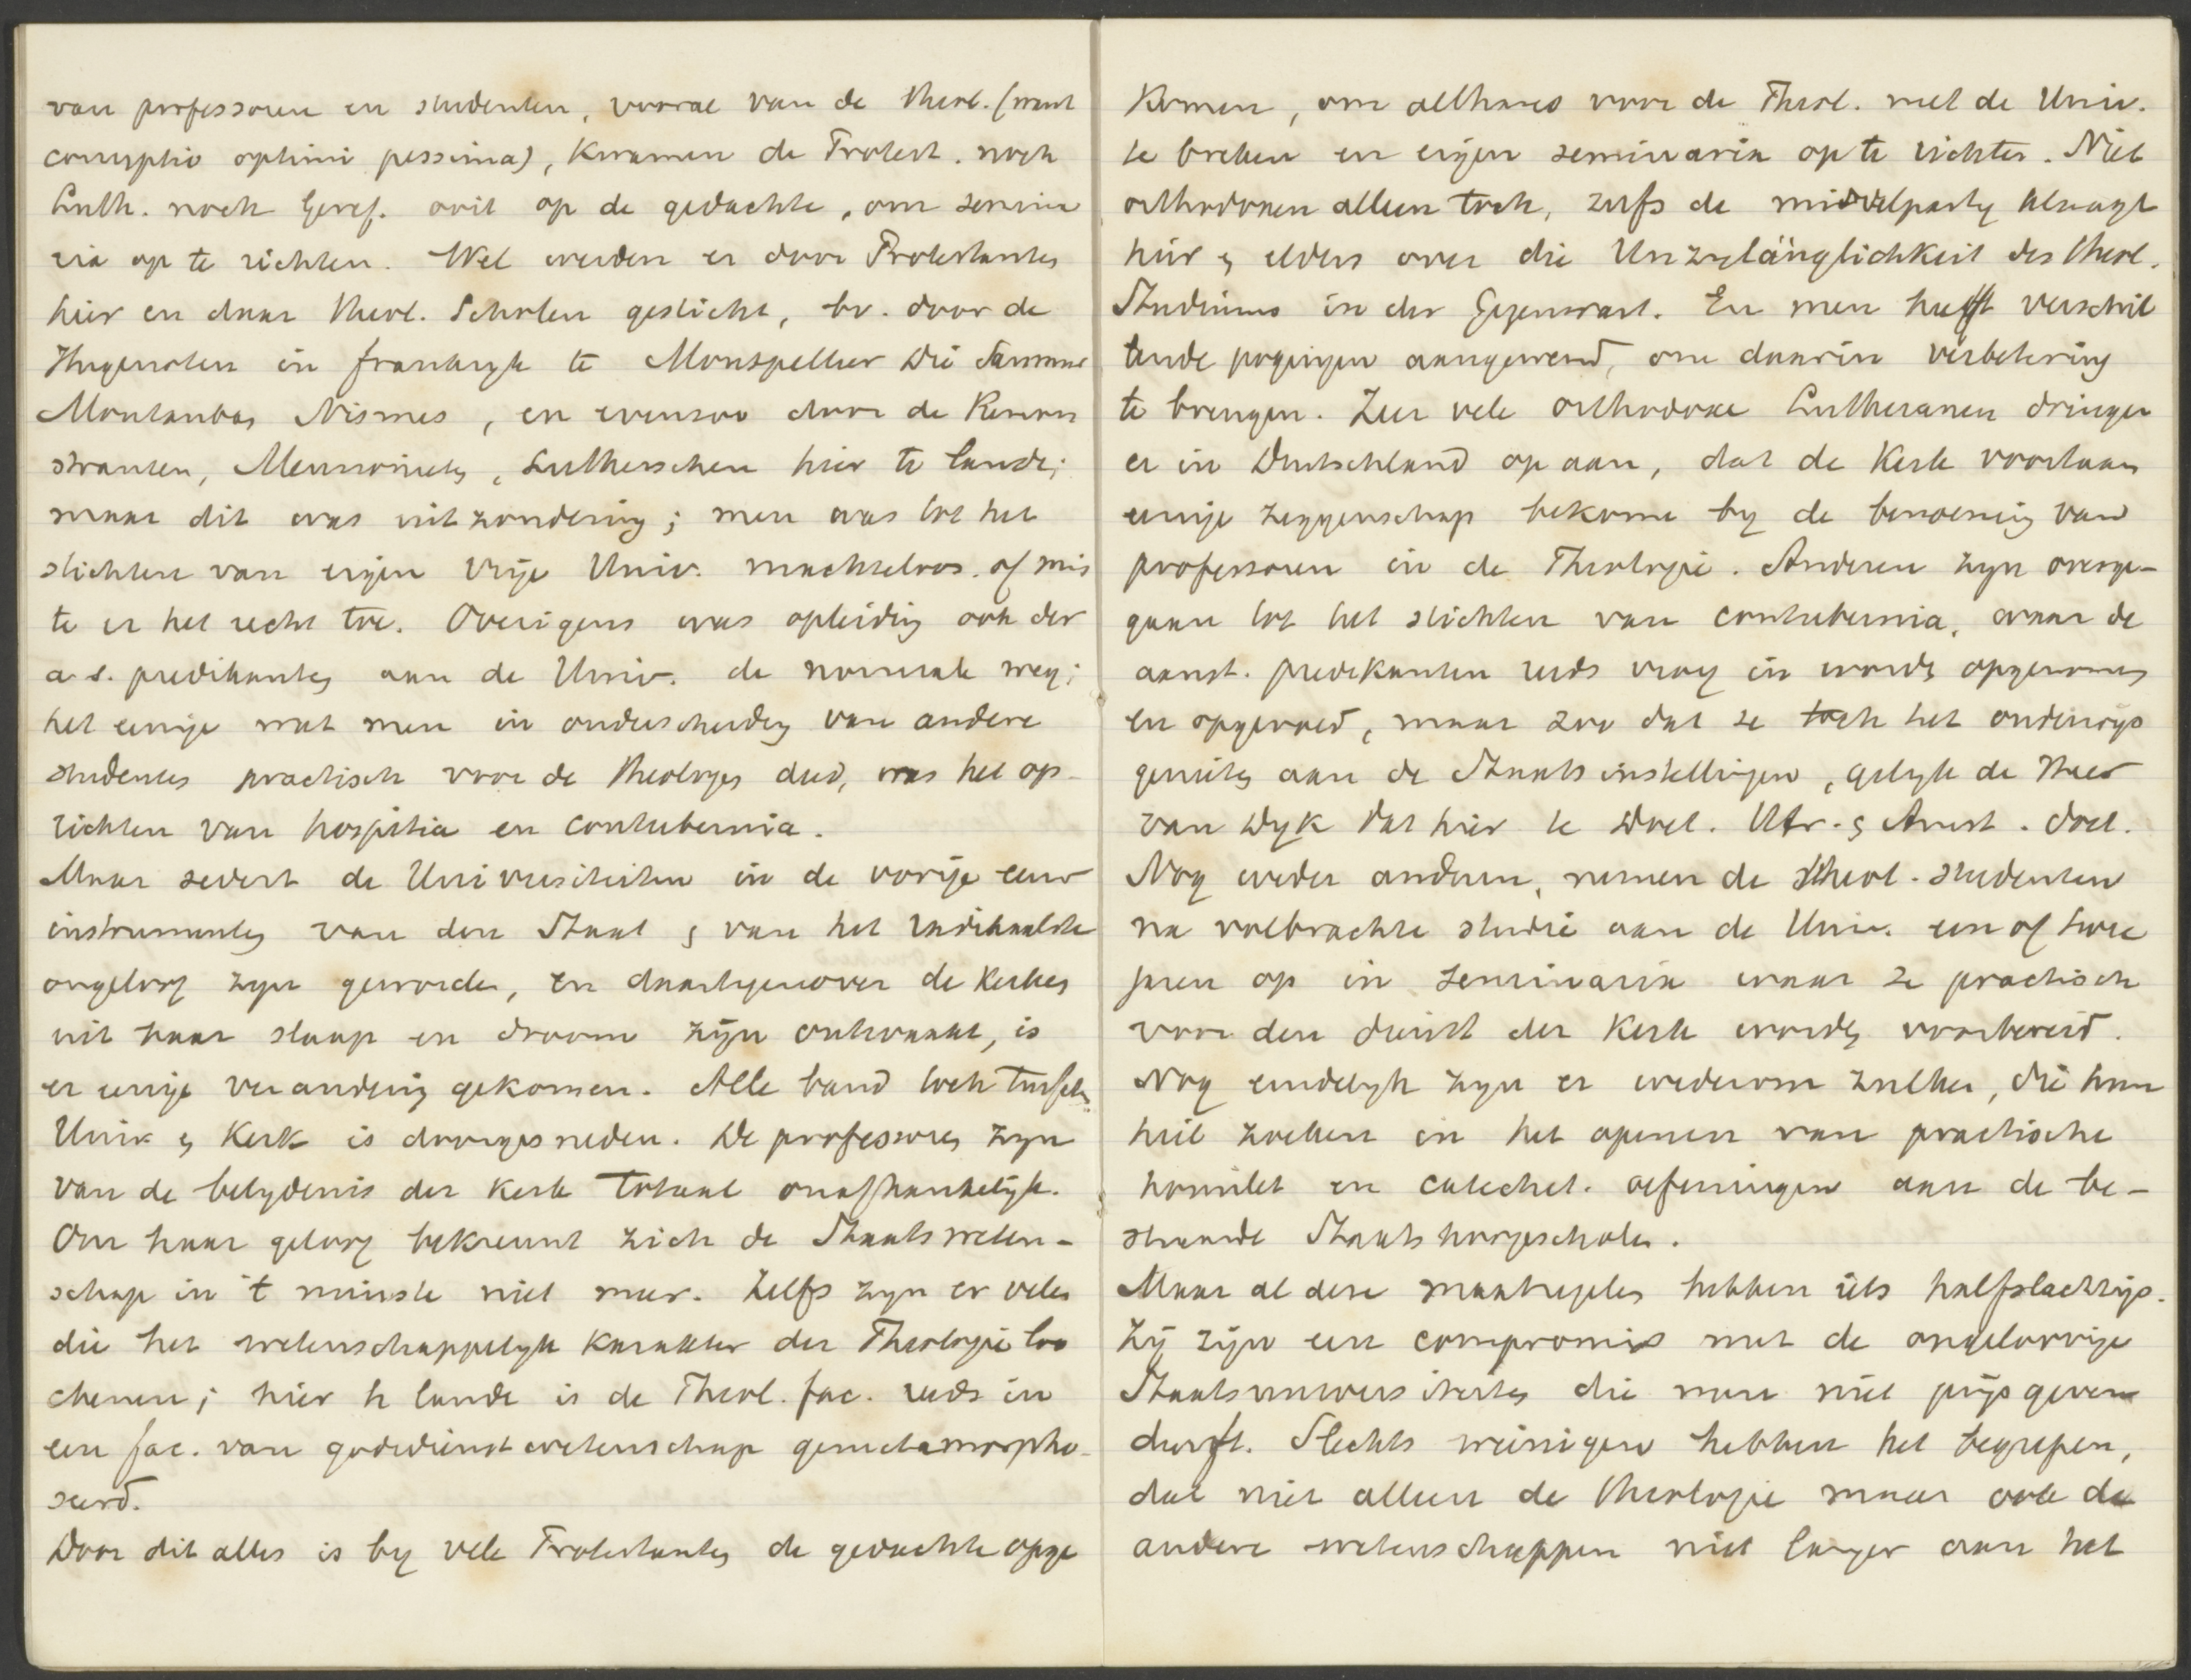 van professoren en studenten, vooral van de theol. (want
corruptio optimi pessima), kwamen de Protest. noch
Luth. noch Geref. ooit op de gedachte, om semina
ria op te richten. Wel werden er door Protestanten
hier en daar theol. Scholen gesticht, bv. door de
Hugenoten in Frankryk te Montpellier Die Saumur
Montauban Nismes, en evenzoo door de Remon
stranten, Mennonieten, Lutherschen hier te lande;
maar dit was uitzondering; men was tot het
stichten van eigen vrije Univ. machteloos. of mis
te er het recht toe. Overigens was opleiding ook der
a.s. predikanten aan de Univ. de normale weg;
het eenige wat men in onderscheiding van andere
studenten practisch voor de theologen deed, was het op-
richten van hospitia en contubernia.
Maar sedert de Universiteiten in de vorige eeuw
instrumenten van den Staat & van het radikaalste
ongeloof zyn geworden, en daartegenover de kerken
uit haar slaap en droom zijn ontwaakt, is
er eenige verandering gekomen. Alle band toch tusschen
Univ & Kerk is doorgesneden. De professoren zyn
van de belydenis der Kerk totaal onafhankelijk.
Om haar geloof bekreunt zich de Staatsweten-
schap in 't minste niet meer. Zelfs zyn er velen
die het wetenschappelyk karakter der Theologie loo
chenen; hier te lande is de Theol. fac. reeds in
een fac. van godsdienstwetenschap gemetamorpho-
seerd.
Door dit alles is by vele Protestanten de gedachte opge
komen, om althans voor de Theol. met de Univ.
te breken en eigen seminaria op te richten. Niet
orthodoxen alleen toch, zelfs de middelparty klaagt
hier & elders over die Unzulänglichkeit des theol.
Studiums in der Gegenwart. En men heeft verschil
lende pogingen aangewend, om daarin verbetering
te brengen. Zeer vele orthodoxe Lutheranen dringen
er in Duitschland op aan, dat de Kerk voortaan
eenige zeggenschap bekome by de benoeming van
professoren in de Theologie. Anderen zyn overge-
gaan tot het stichten van contubernia, waar de
aanst. predikanten reeds vroeg in worden opgenomen
en opgevoed, maar zoo dat ze toch het onderwijs
genieten aan de Staatsinstellingen, gelyk de Heer
van Dyk dat hier te Doet. Utr. & Amst. doet.
Nog weder anderen, nemen de theol. studenten
na volbrachte studie aan de Univ. een of twee
jaren op in seminaria waar ze practisch
voor den dienst der Kerk worden voorbereid.
Nog eindelyk zyn er wederom zulken, die hun
heil zoeken in het openen van practische
homilet en catechet. oefeningen aan de be-
staande Staatshoogescholen.
Maar al deze maatregelen hebben iets halfslachtigs.
Zij zijn een compromis met de ongeloovige
Staatsuniversiteiten die men niet prijs geven
durft. Slechts weinigen hebben het begrepen,
dat niet alleen de theologie maar ook de
andere wetenschappen niet langer aan het